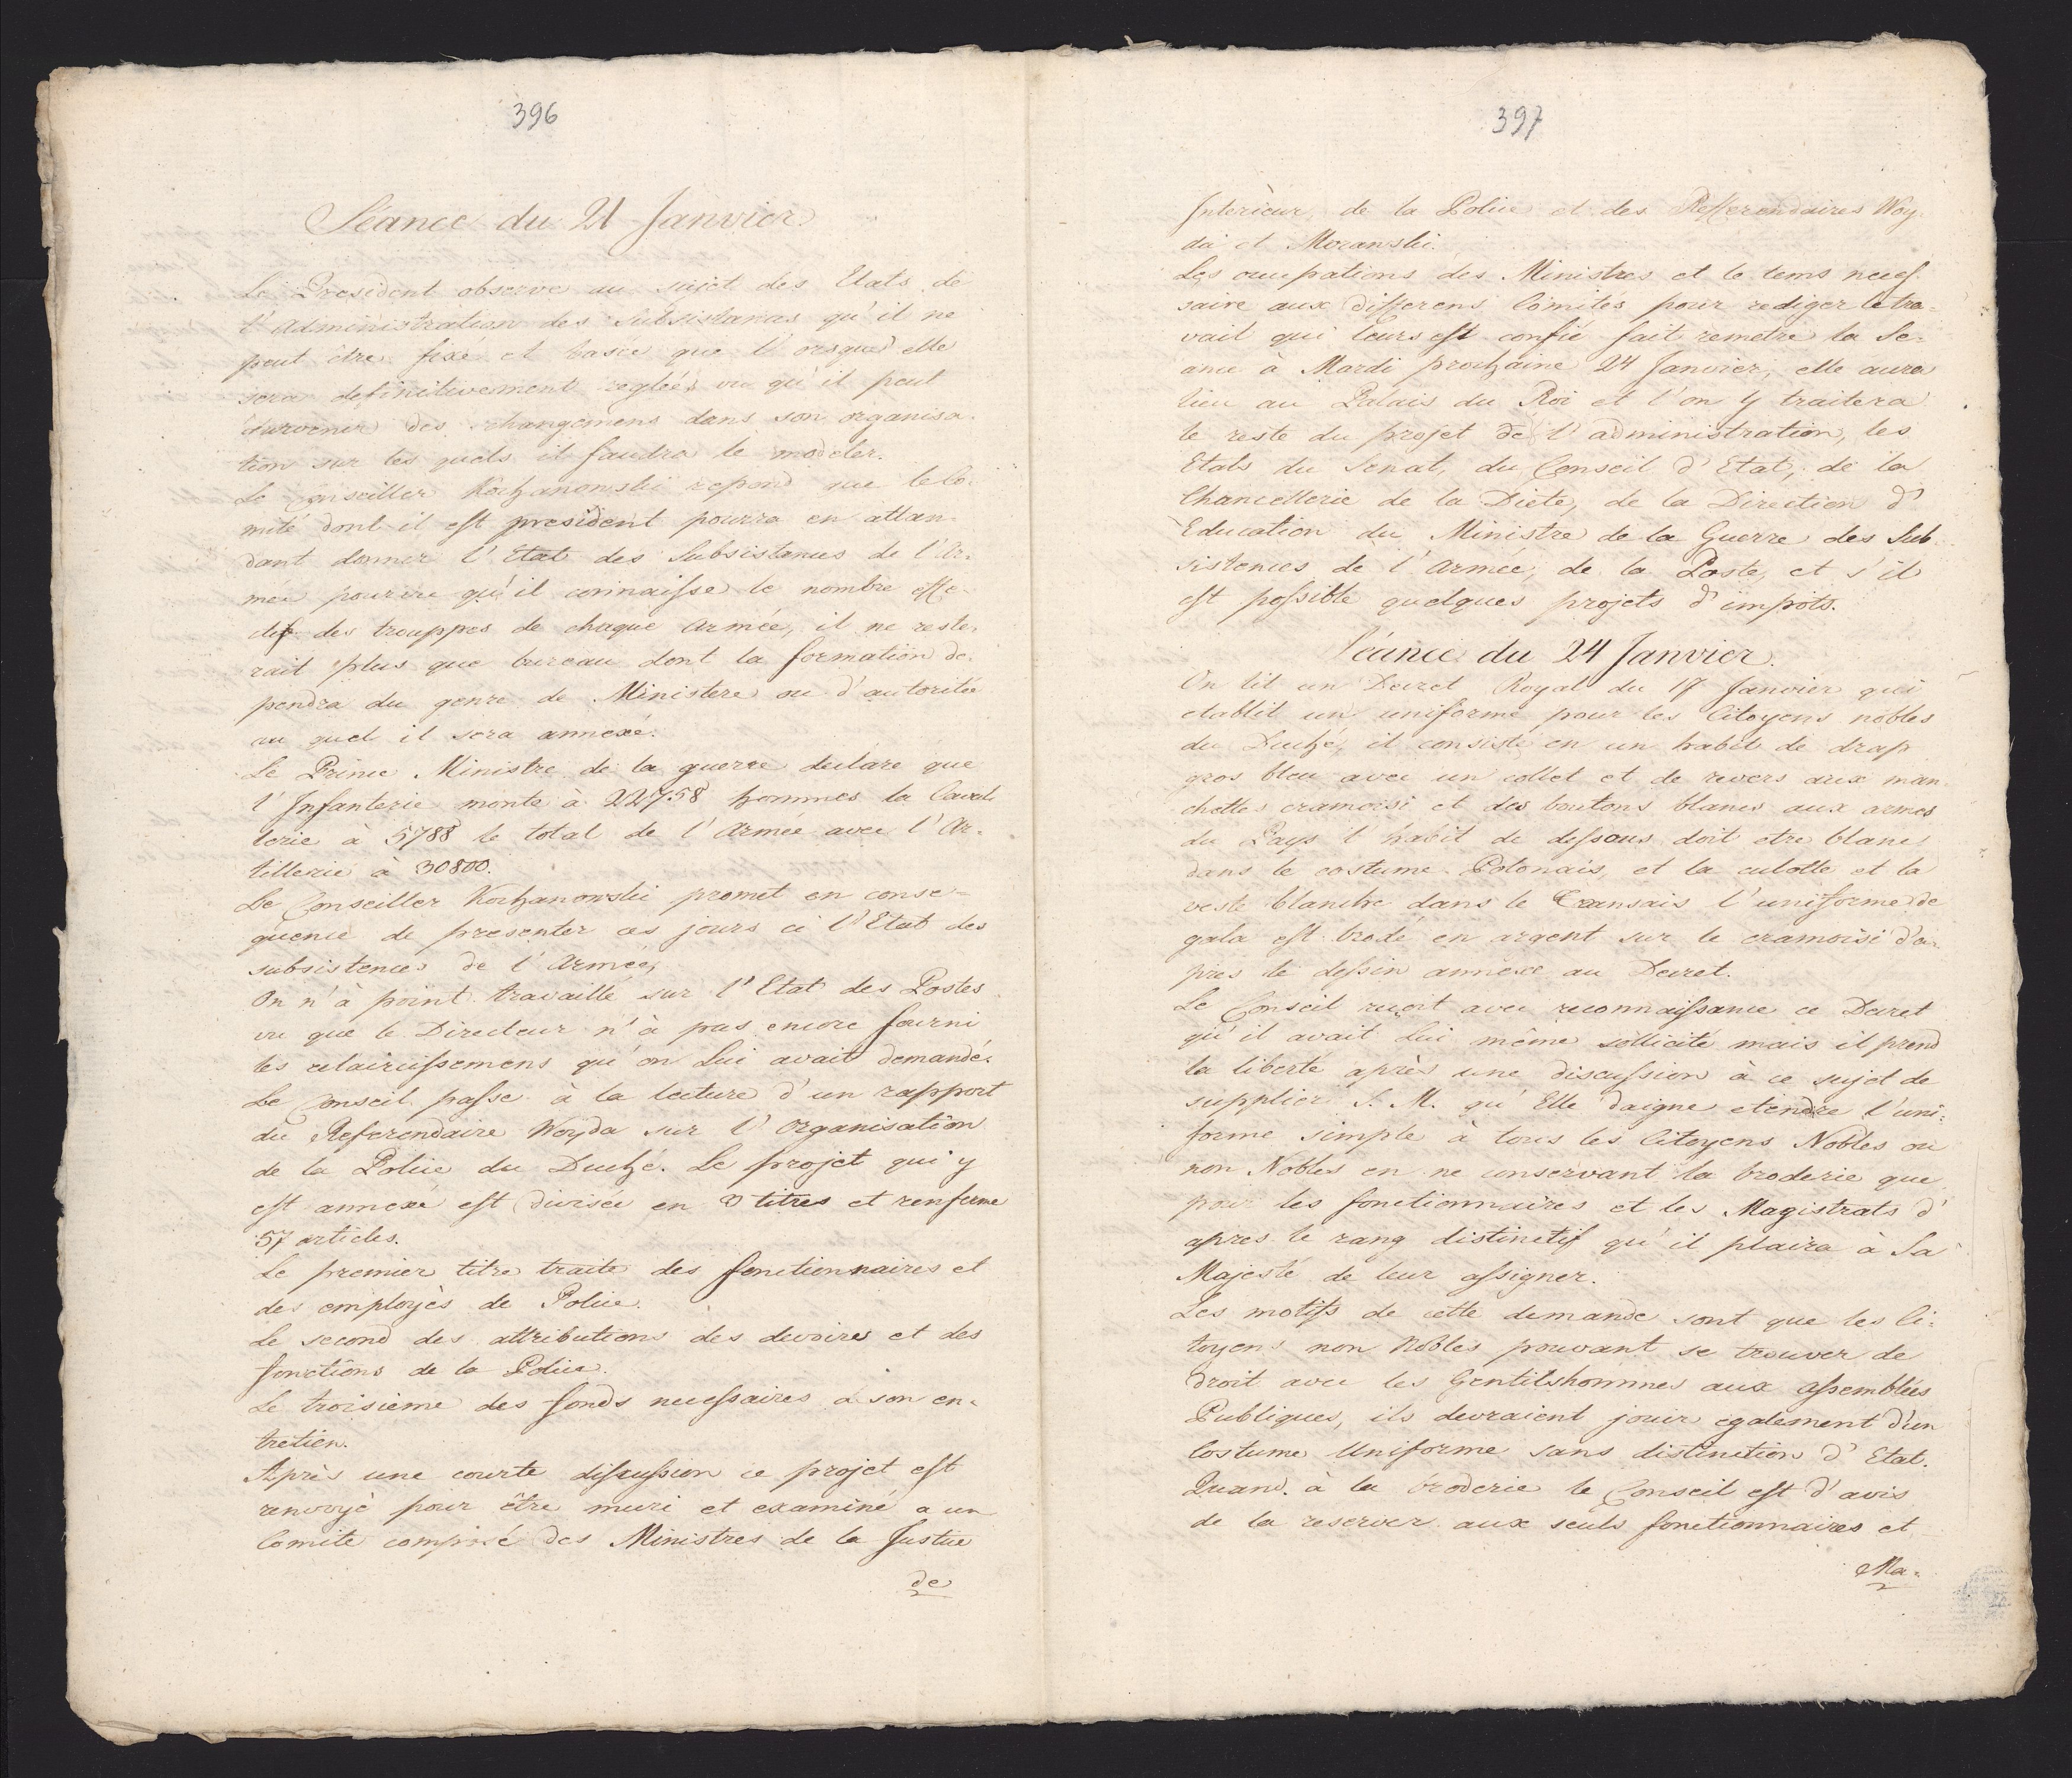 396
Séance du 21 Janvier.
Le President observe au sujet des Etats de
l'Administration des Subsistances qu'il ne
peut être fixé et basée que l'orsque elle
sera definitivement regleé, vu qu'il peut
survenir des changemens dans son organisa-
tion sur les quels il faudra le modeler.
Le Conseiller Kochanowski repond que le Co-
mité dont il est president pourra en atten-
dant donner l'Etat des Subsistances de l'Ar-
mée pourvu qu'il connaisse le nombre effe-
ctif des trouppes de chaque Armée, il ne reste-
rait plus que bureau dont la formation de-
pendra du genre de Ministere ou d'autorité
au quel il sera annexé.
Le Prince Ministre de la guerre declare que
l'Infanterie monte à 22758 hommes la Caval-
lerie à 5788 le total de l'Armée avec l'Ar-
tillerie à 30800.
Le Conseiller Kochanowski promet en conse-
quence de presenter ces jours ci l'Etat des
subsistences de l'Armée,
On n'à point travaillé sur l'Etat des Postes
vu que le Directeur n'à pas encore fourni
les eclaircissemens qu'on Lui avait demandé.
Le Conseil passe à la lecture d'un rapport
du Referendaire Woyda sur l'Organisation
de la Police du Duché. Le projet qui y
est annexé est divisée en 3 titres et renferme
57 articles.
Le premier titre traite des fonctionnaires et
des employès de Police.
Le second des attributions des devoires et des
fonctions de la Police.
Le troisieme des fonds necessaires à son en-
tretien.
Après une courte discussion ce projet est
renvoyè pour être muri et examiné a un
Comite composé des Ministres de la Justice
de
397
Interieur de la Police et des Refferendaires Woy-
da et Morawski.
Les occupations des Ministres et le tems neces-
saire aux differens Comites pour rediger le tra-
vail qui leurs est confié fait remetre la Se-
ance à Mardi prochaine 24 Janvier, elle aura
lieu au Palais du Roi et l'on y traitera
le reste du projet de l'administration, les
Etats du Senat, du Conseil d'Etat, de la
Chancellerie de la Diete, de la Direction d'
Education du Ministre de la Guerre des Sub-
sistences de l'Armée, de la Poste, et s'il
est possible quelques projets d'impots.
Séance du 24 Janvier.
On lit un Decret Royal du 17 Janvier qui
etablit un uniforme pour les Citoyens nobles
du Duché, il consiste en un habit de drap
gros bleu avec un collet et de revers aux man-
chettes cramoisi et des boutons blancs aux armes
du Pays l'habit de dessous doit etre blanc
dans le costume Polonais, et la culotte et la
veste blanche dans le Francais l'uniforme de
gala est brodé en argent sur le cramoisi d'a-
pres le dessin annexe au Decret.
Le Conseil reçoit avec reconnaissance ce Decret
qu'il avait Lui même sollicité mais il prend
la liberté après une discussion à ce sujet de
supplier S. M. qu'Elle daigne etendre l'uni-
forme simple à tous les Citoyens Nobles ou
non Nobles en ne conservant la broderie que
pour les fonctionnaires et les Magistrats d'
apres le rang distinctif qu'il plaira à Sa
Majesté de leur assigner.
Les motifs de cette demande sont que les Ci-
toyens non Nobles pouvant se trouver de
droit avec les Gentilshommes aux assemblées
Publiques, ils devraient jouir egalement d'un
Costume Uniforme sans distinction d'Etat.
Quand. à la broderie le Conseil est d'avis
de la reserver aux seuls fonctionnaires et
Ma-